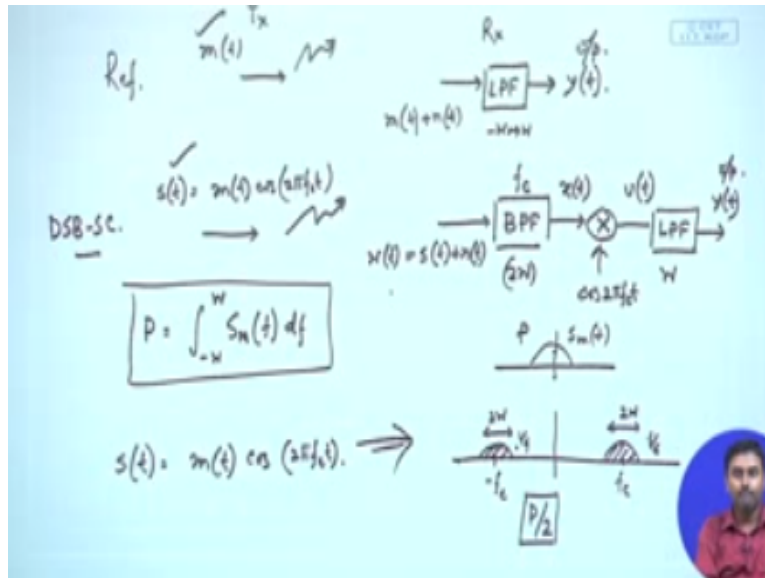 Ref.
Tx
m(t)
Rx
m(t)+n(t)
LPF
-W→W
o/p.
y(t).
s(t) = m(t) cos(2πfct)
DSB-SC.
x(t) = s(t)+n(t)
fc
BPF
(2W)
x(t)
X
cos2πfct
v(t)
LPF
W
o/p.
y(t)
P = ∫_{-W}^{W} Sm(f) df
P
Sm(f)
s(t) = m(t) cos (2πfct).
2W
1/4
-fc
2W
1/4
fc
P/2